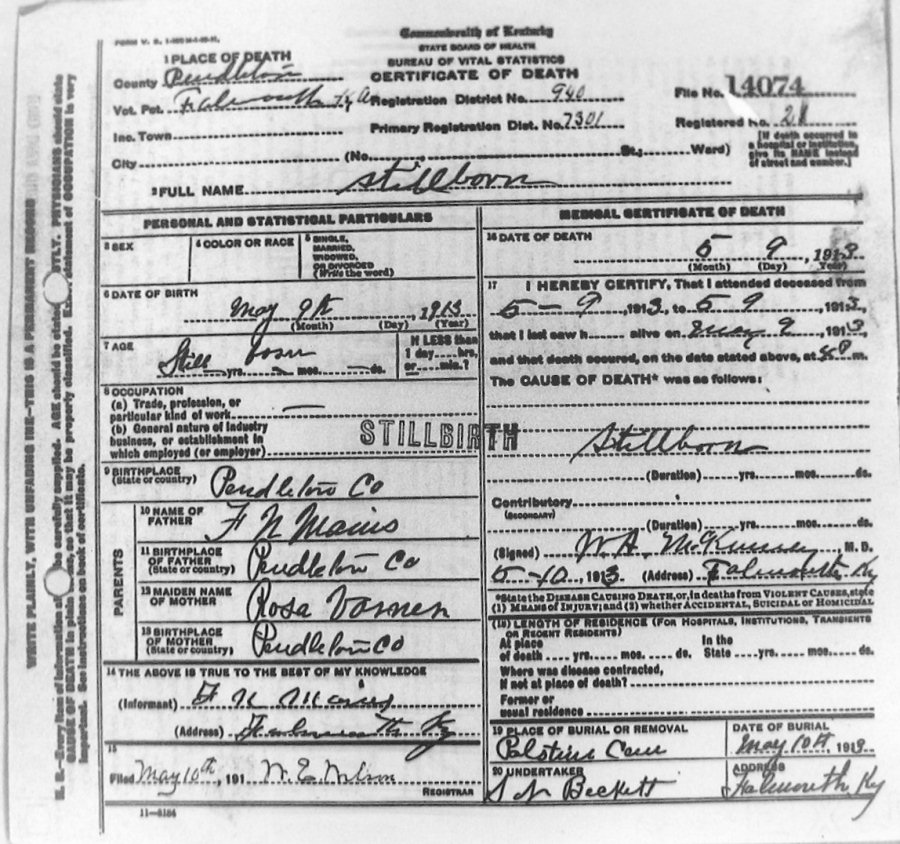 Commonwealth of Kentucky
STATE BOARD OF HEALTH
BUREAU OF VITAL STATISTICS
CERTIFICATE OF DEATH
1 PLACE OF DEATH
County Pendleton
Vot. Pct. Falmouth Ky A
Registration District No. 940
File No. 14074
Inc. Town
Primary Registration Dist. No. 7301
Registered No. 21
City (No. , St.; Ward)
[If death occurred in
a hospital or institution,
give its NAME instead
of street and number.]
2 FULL NAME Stillborn
PERSONAL AND STATISTICAL PARTICULARS
3 SEX
4 COLOR OR RACE
5 SINGLE,
MARRIED,
WIDOWED,
OR DIVORCED
(Write the word)
6 DATE OF BIRTH
May 9th, 1913
(Month) (Day) (Year)
7 AGE
Still born
yrs. mos. ds.
If LESS than
1 day hrs.
or min.?
8 OCCUPATION
(a) Trade, profession, or
particular kind of work —
(b) General nature of industry
business, or establishment in
which employed (or employer)
STILLBIRTH
9 BIRTHPLACE
(State or country) Pendleton Co
PARENTS
10 NAME OF
FATHER F N
11 BIRTHPLACE
OF FATHER
(State or country) Pendleton Co
12 MAIDEN NAME
OF MOTHER Rosa
13 BIRTHPLACE
OF MOTHER
(State or country) Pendleton Co
14 THE ABOVE IS TRUE TO THE BEST OF MY KNOWLEDGE
(Informant)
(Address) Falmouth Ky
15
Filed May 10th, 191 W. E. Wilson
REGISTRAR
11-6184
MEDICAL CERTIFICATE OF DEATH
16 DATE OF DEATH
5 9, 1913
(Month) (Day) Year)
17 I HEREBY CERTIFY, That I attended deceased from
5-9, 1913, to 5 9 1913,
that I last saw h alive on May 9, 1913,
and that death occured, on the date stated above, at m.
The CAUSE OF DEATH* was as follows:
Stillborn
(Duration) yrs. mos. ds.
Contributory
(SECONDARY)
(Duration) yrs. mos. ds.
(Signed) W. A. McKenney, M. D.
5-10, 1913 (Address) Falmouth Ky
*State the DISEASE CAUSING DEATH, or, in deaths from VIOLENT CAUSES, state
(1) MEANS OF INJURY; and (2) whether ACCIDENTAL, SUICIDAL or HOMICIDAL
(18) LENGTH OF RESIDENCE (FOR HOSPITALS, INSTITUTIONS, TRANSIENTS
OR RECENT RESIDENTS)
At place
of death yrs. mos. ds.
In the
State yrs. mos. ds.
Where was disease contracted,
If not at place of death?
Former or
usual residence
19 PLACE OF BURIAL OR REMOVAL
DATE OF BURIAL
Cem
May 10th 1913
20 UNDERTAKER
ADDRESS
Beckett
Falmouth Ky
WRITE PLAINLY, WITH UNFADING INK—THIS IS A PERMANENT RECORD